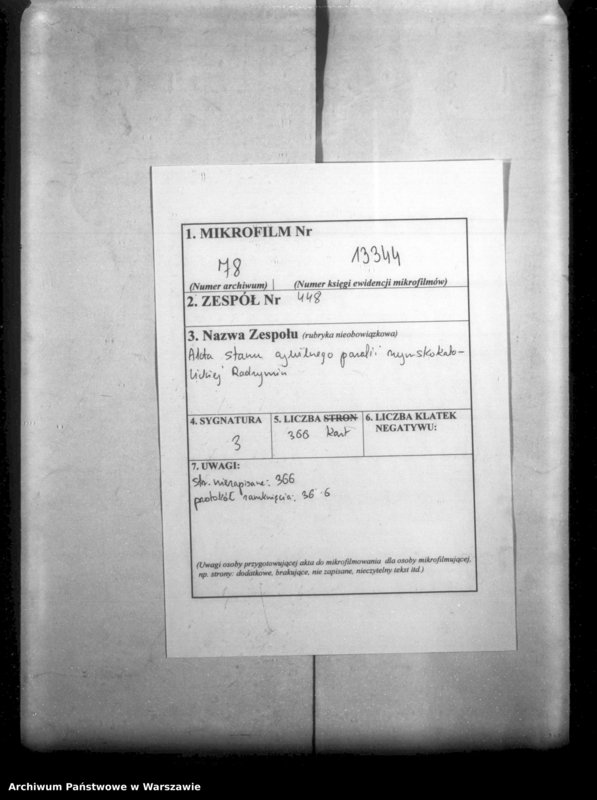 1. MIKROFILM Nr
78 13344
(Numer archiwum) (Numer księgi ewidencji mikrofilmów)
2. ZESPÓŁ Nr 448
3. Nazwa Zespołu (rubryka nieobowiązkowa)
Akta stanu cywilnego parafii rzymskokato-
lickiej Radzymin
4. SYGNATURA 5. LICZBA STRON 6. LICZBA KLATEK
NEGATYWU:
3 366 kart
7. UWAGI:
str. niezapisane: 366
protokół zamknięcia: 36 6
(Uwagi osoby przygotowującej akta do mikrofilmowania dla osoby mikrofilmującej,
np. strony: dodatkowe, brakujące, nie zapisane, nieczytelny tekst itd.)
Archiwum Państwowe w Warszawie